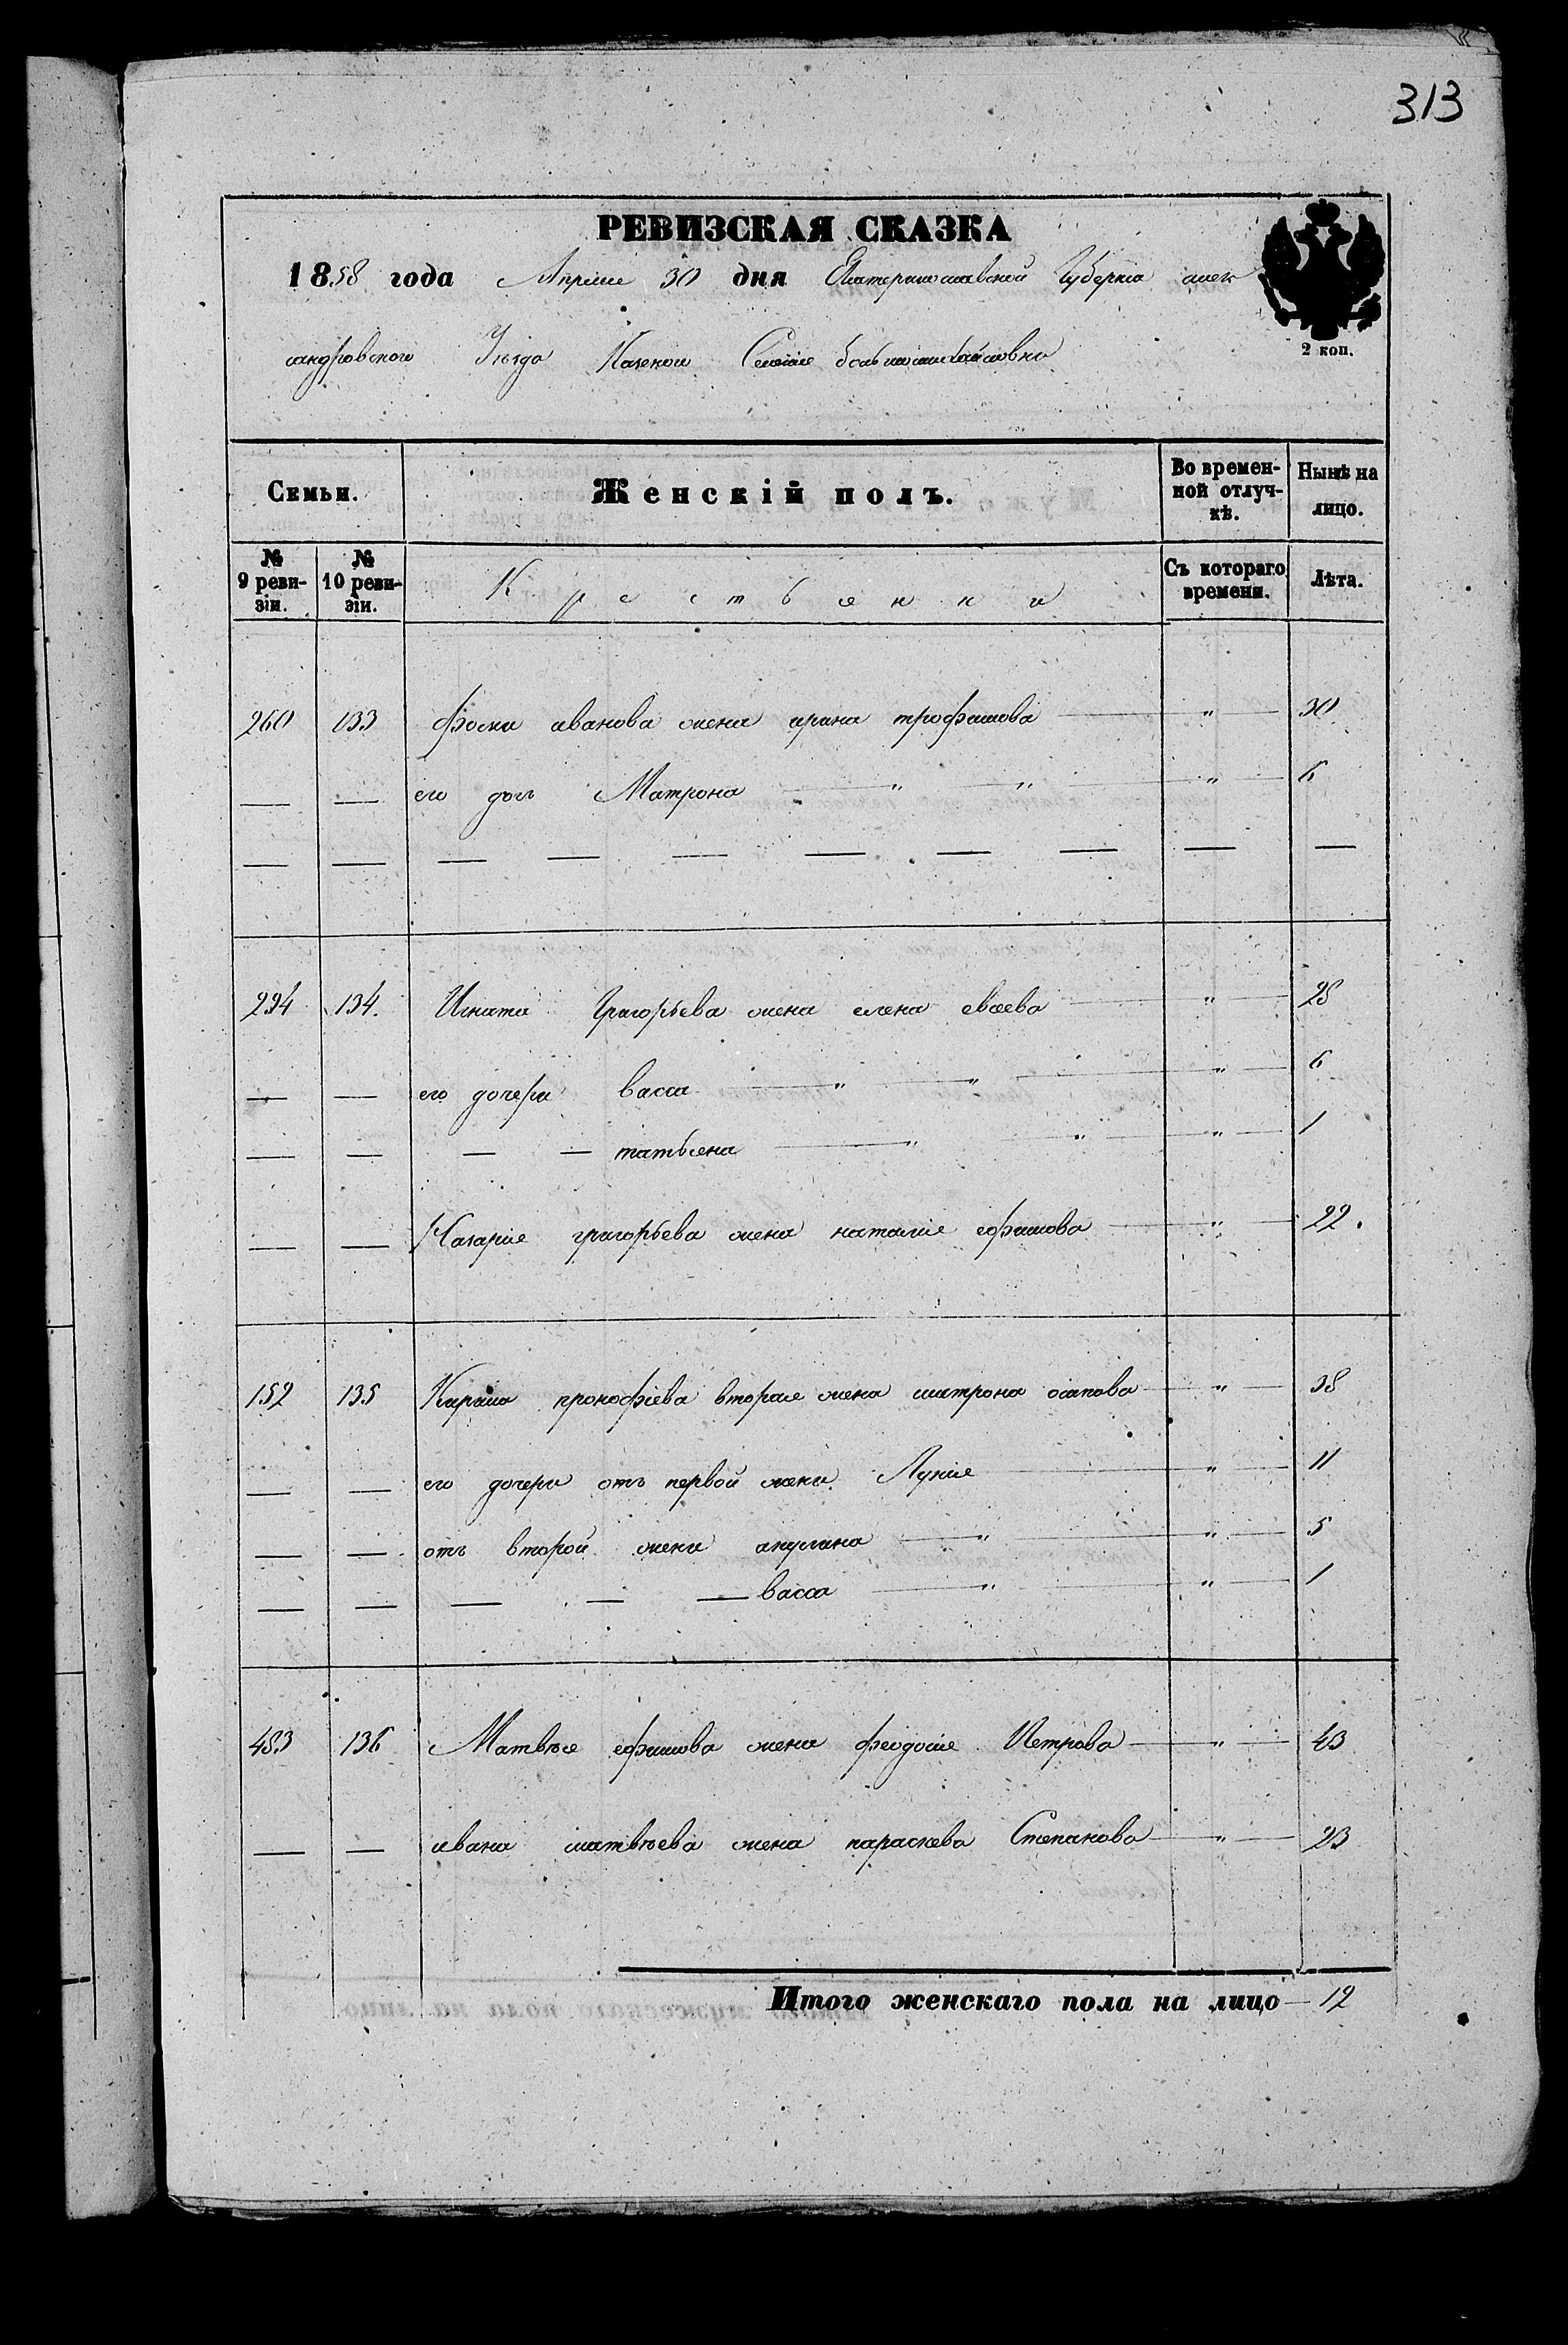 313
РЕВИЗСКАЯ СКАЗКА
1858 года Апреля 30 дня Екатеринославской Губернiи алек
сандровского Уѣзда Казеного Селенiя большомихайловки
2 коп.
Семьи. Женскiй полъ. Во времен-ной отлуч-кѣ. Нынѣ на лицо.
№ 9 реви-зiи. № 10 реви-зiи. Крестьянки Съ котораго времени. Лѣта.
260 133 фоки иванова жена ирина трофимова — " — 30
— — его дочь Матрона — " — " — " — 6
— — — — — — — — — —
294 134. Игната Григорьева жена елена — " — 28
— — его дочери васса — " — " — " — 6
— — — — татьяна — " — " — " — 1
— — Назарiя григорьева жена наталiя ефимова — " — 22.
152 135 Кирила прокофiева вторая жена матрона осипова — " — 38
— — его дочери отъ первой жени Лукiя — " — 11
— — отъ второй жени акулина — " — " — 5
— — — — — васса — " — " — 1
483 136 Матвѣя ефимова жена феодосiя Петрова — " — 43
— — ивана матвѣева жена параскева Степанова — " — 23
Итого женскаго пола на лицо — 12